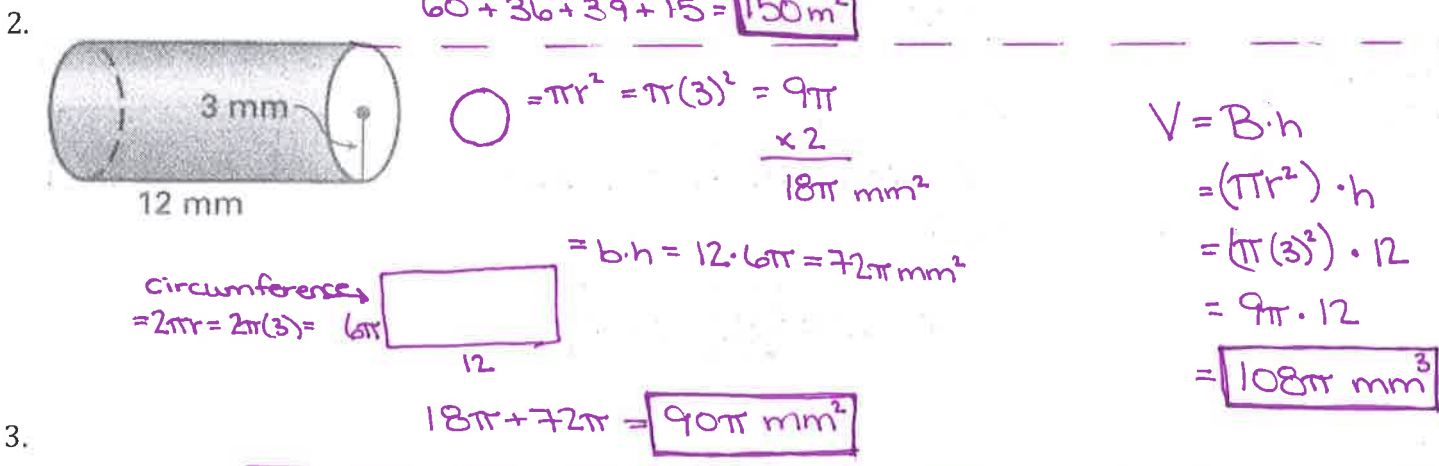 60 + 36 + 39 + 15 = 150 m²
2.
3 mm
12 mm
= πr² = π(3)² = 9π
x 2
18π mm²
= b·h = 12·6π = 72π mm²
circumference
= 2πr = 2π(3) = 6π
12
18π + 72π = 90π mm²
V = B·h
= (πr²) · h
= (π(3)²) · 12
= 9π · 12
= 108π mm³
3.